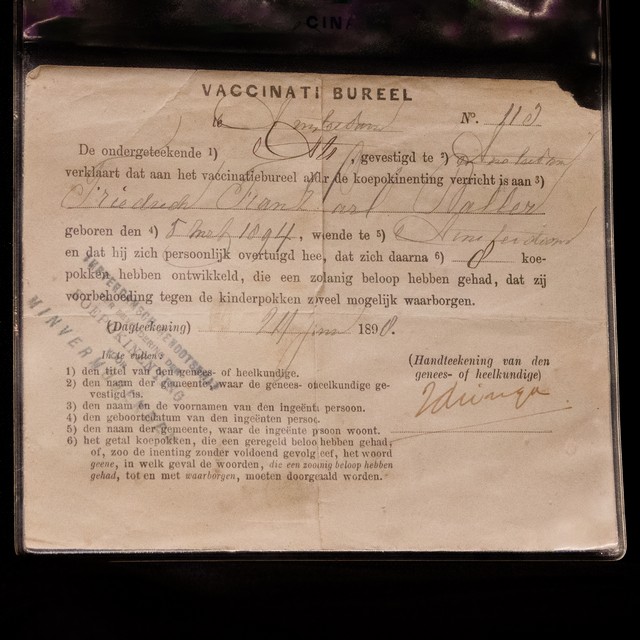 CINA
VACCINATI BUREEL
te Amsterdam No. 113
De ondergeteekende 1) Arts, gevestigd te 2) Amsterdam
verklaart dat aan het vaccinatiebureel aldr de koepokinenting verricht is aan 3)
Friedrich Frans Karl Haller
geboren den 4) 8 1894, w ende te 5) Amsterdam
en dat hij zich persoonlijk overtuigd hee, dat zich daarna 6) 8 koe-
pokken hebben ontwikkeld, die een zolanig beloop hebben gehad, dat zij
voorbehoeding tegen de kinderpokken zoveel mogelijk waarborgen.
(Dagteekening) 24 Juni 1898.
(Handteekening van den
genees- of heelkundige)
1) den titel van den genees- of heelkundige.
2) den naam der gemeente, waar de genees- of heelkundige ge-
vestigd is.
3) den naam en de voornamen van den ingeënten persoon.
4) den geboortedatum van den ingeënten persoon.
5) den naam der gemeente, waar de ingeënte persoon woont.
6) het getal koepokken, die een geregeld beloop hebben gehad,
of, zoo de inenting zonder voldoend gevolg bleef, het woord
geene, in welk geval de woorden, die een zoonig beloop hebben
gehad, tot en met waarborgen, moeten doorgehaald worden.
KOEPOKINENTING
MINVERMOGENDEN